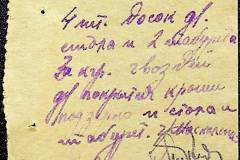 4 шт. досок дл.
стола и 2 табурета
3 кгр. гвоздей
дл покрытия крыши
и стола и
табурет.